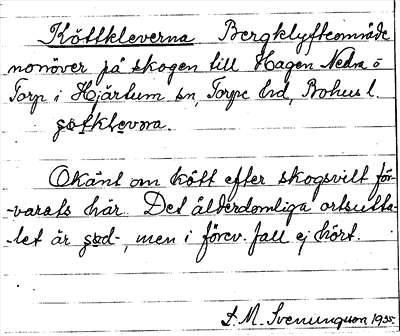 Köttkleverna Bergklyfteområde
norröver på skogen till Hagen Nedra o
Torp i Hjärtum sn, Torpe hd, Bohus l.
Okänt om kött efter skogsvilt för-
-varats här. Det ålderdomliga ortsutta-
-let är , men i förev. fall ej hört.
S. M. Svenungson 1935